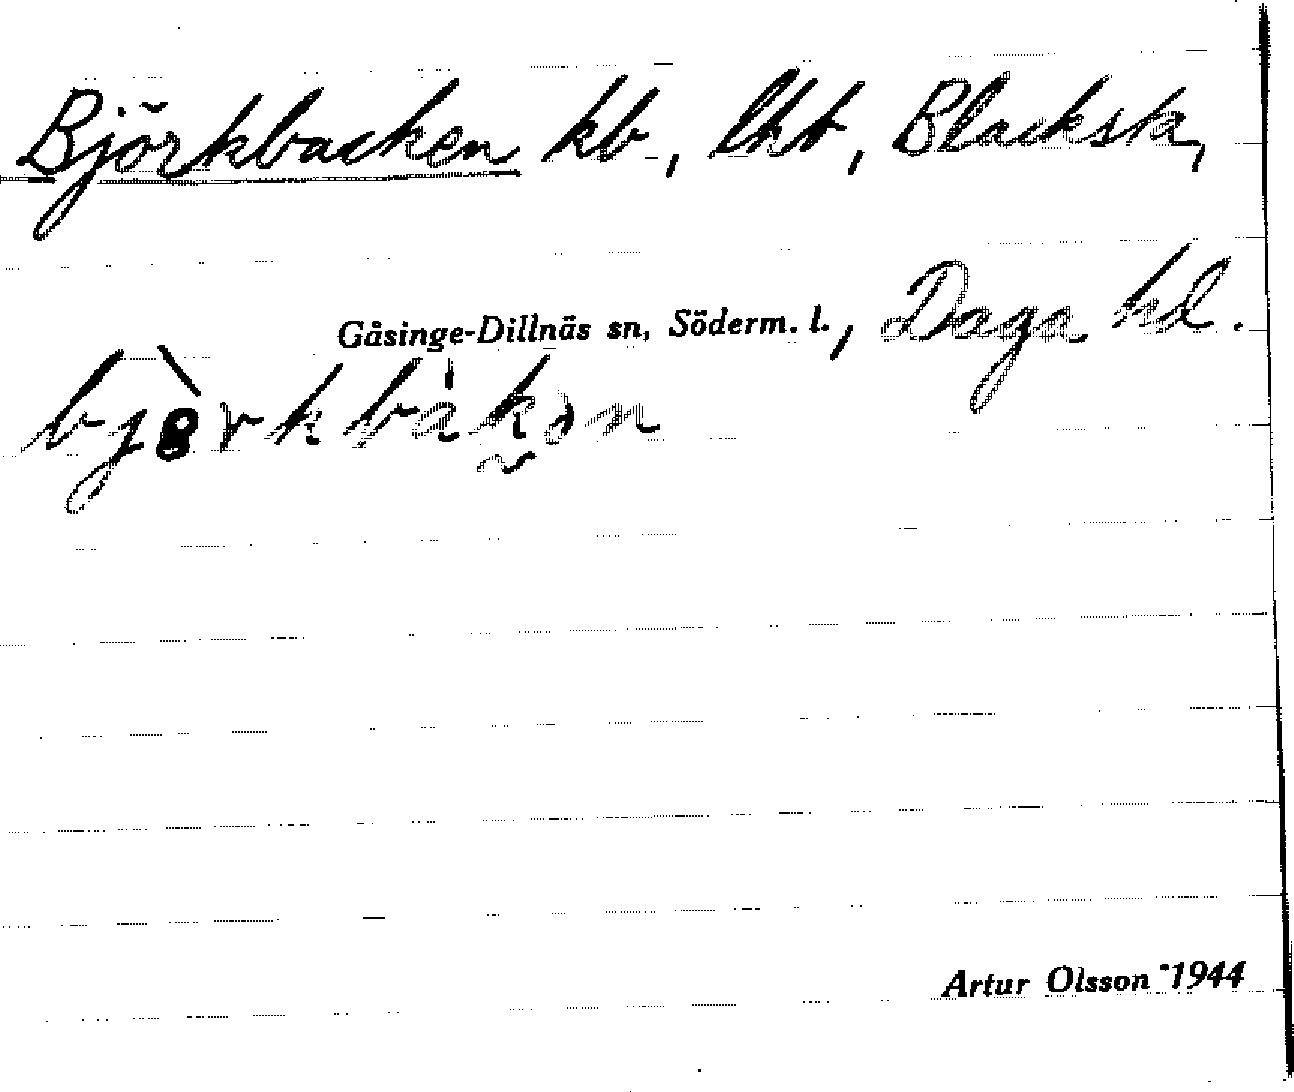 Björkbacken kb, lht, Blacksta,
Gåsinge-Dillnäs sn, Söderm. l., Daga hd.
bjòrkbákən
Artur Olsson 1944